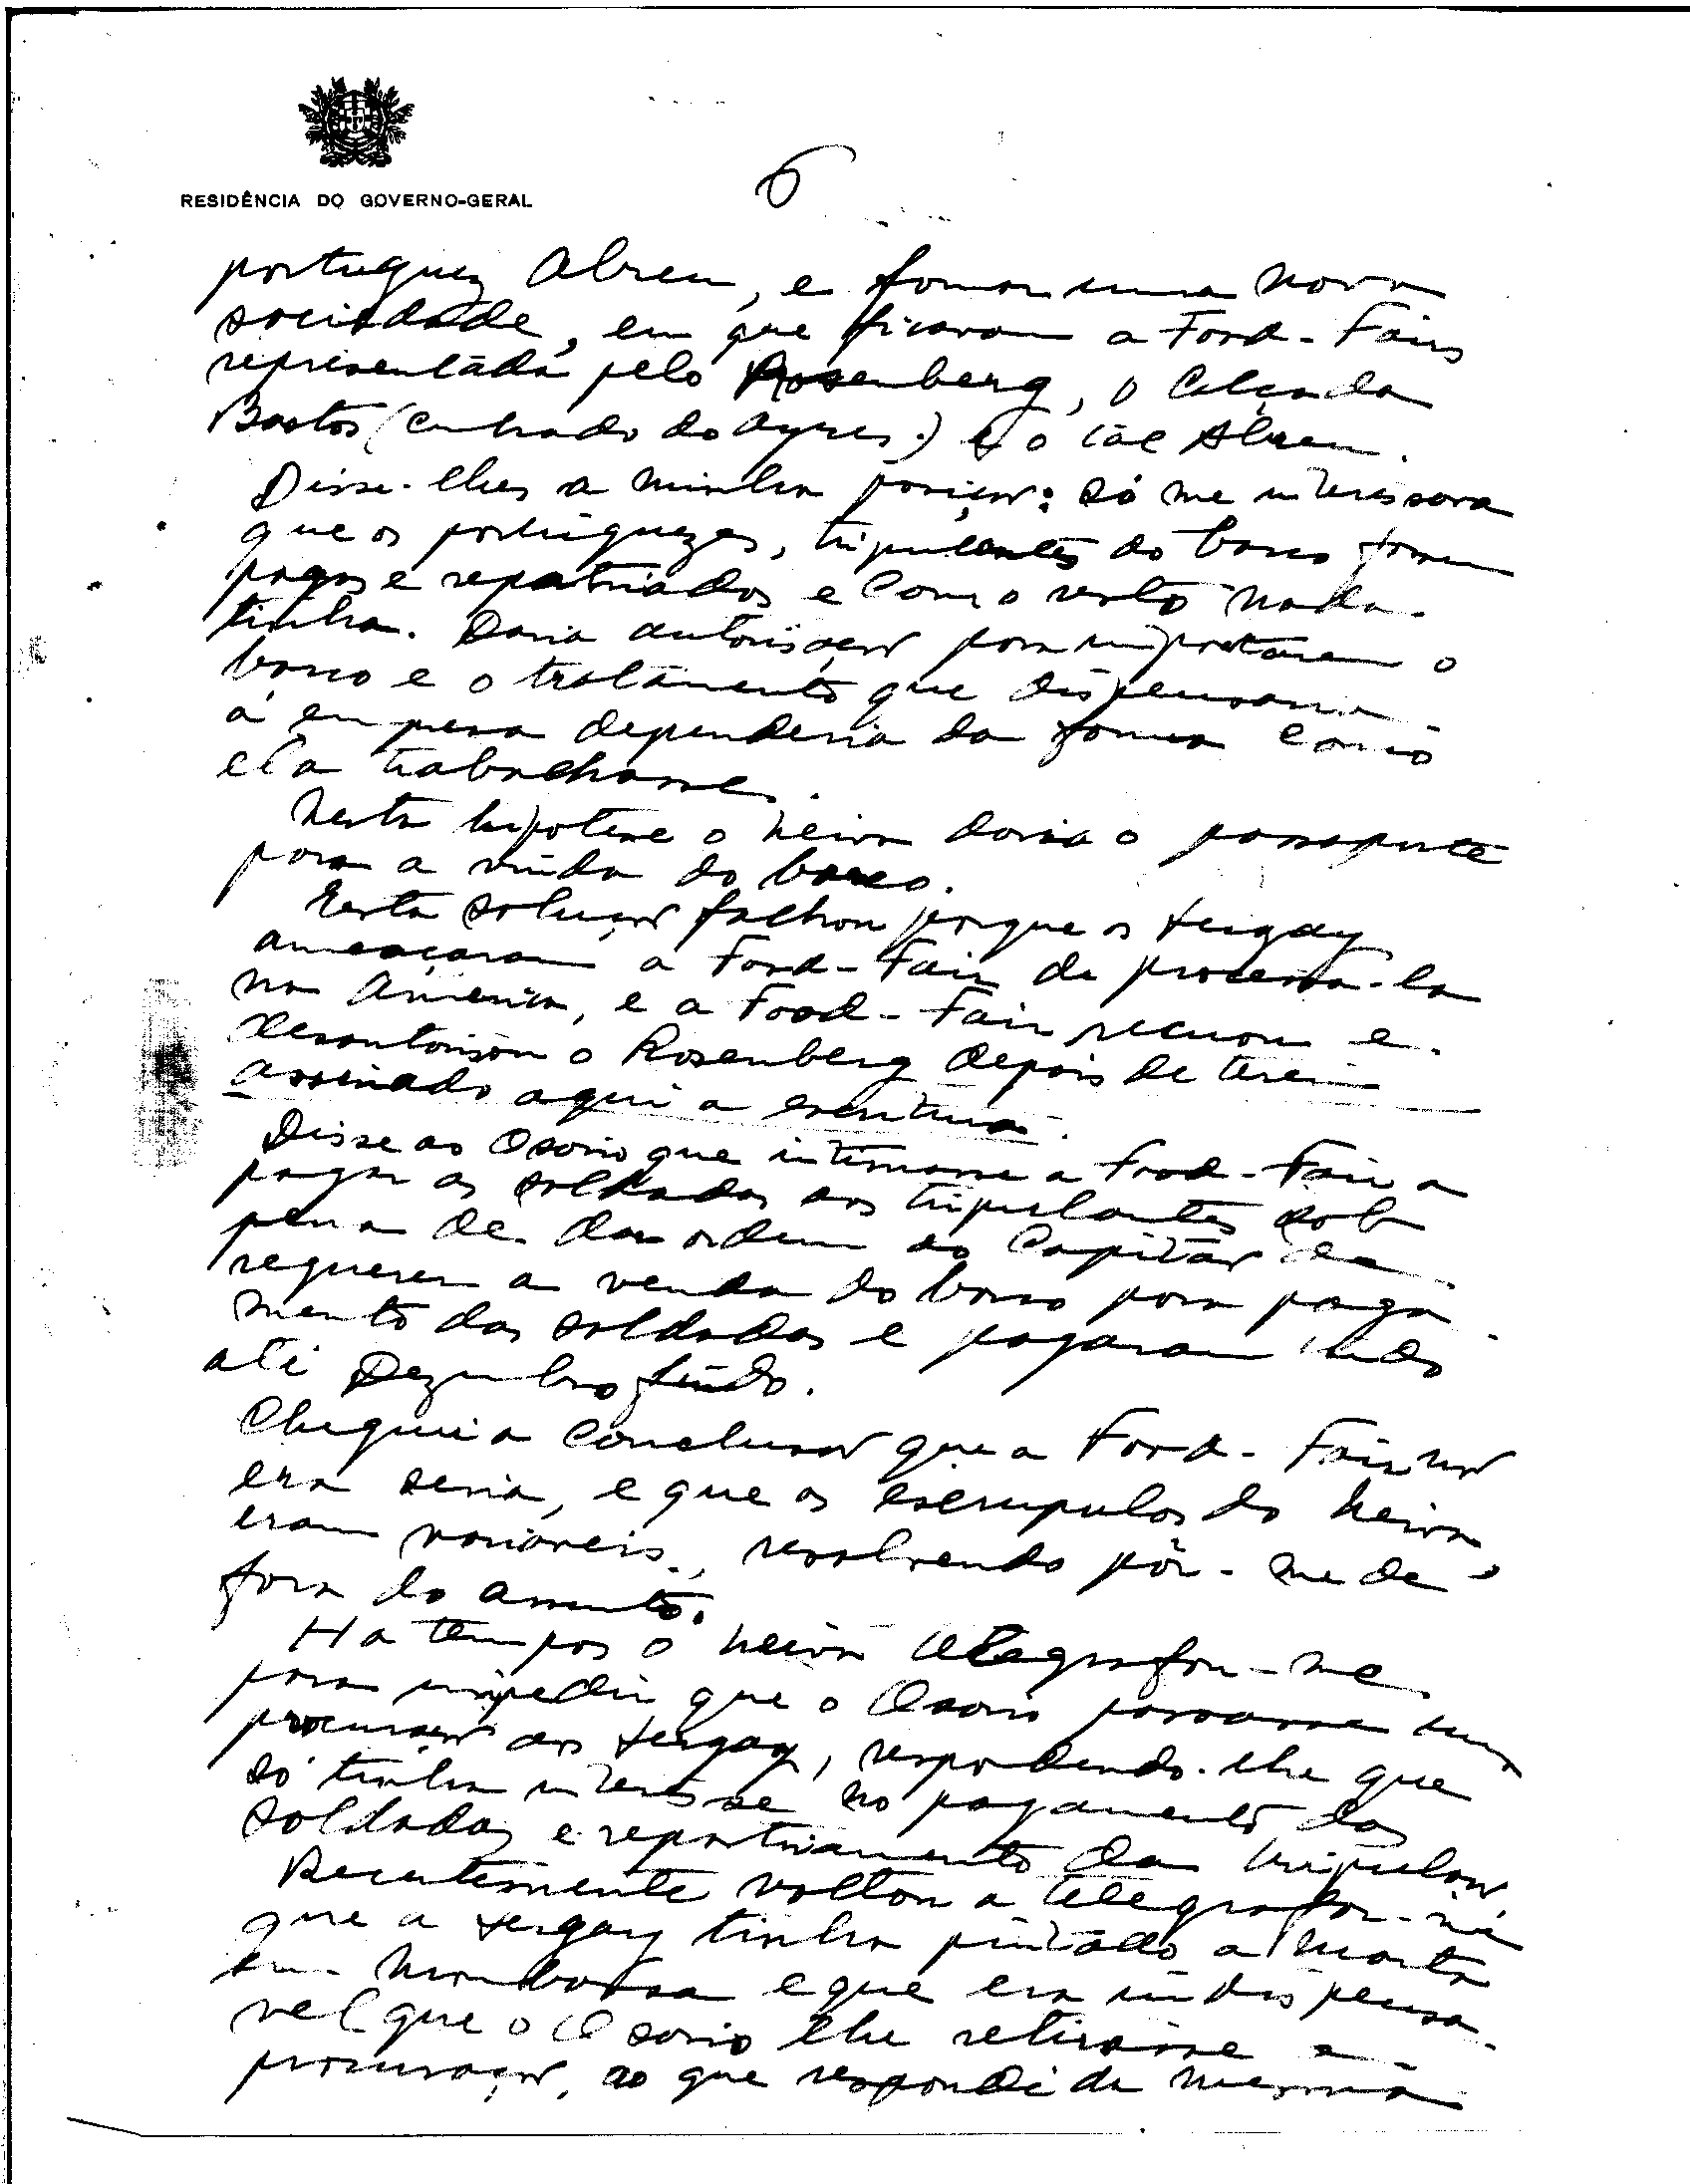 RESIDÊNCIA DO GOVERNO-GERAL
6
portuguez Abreu, e formou uma nova
sociedade, em que ficaram a Food-Fairs
representada pelo Rosenberg, o Calçada
Bastos (cunhado do Ayres) e o tal Abreu.
Disse-lhes a minha posição: só me interessava
que os portuguezes, tripulantes do barco fossem
pagos e repatriados e com o resto nada
tinha. Daria autorisação para importarem o
barco e o tratamento que dispensaria
á empresa dependeria da forma como
ela trabalhasse.
Nesta hipotese o Neiva daria o passaporte
para a vinda do barco.
Esta solução falhou porque os Sergay
ameaçaram a Food-Fair de processa-la
na America, e a Food-Fair recuou e
desautorisou o Rosenberg depois de terem
assinado aqui a escritura.
Disse ao Osorio que intimasse a Food-Fair a
pagar as soldadas aos tripulantes sob
pena de dar ordem ao Capitão de
requerer a venda do barco para paga
mento das soldadas e pagaram tudo
até Dezembro findo.
Cheguei a conclusão que a Food-Fair não
era seria, e que os escrupulos do Neiva
eram variaveis, resolvendo pôr-me de
fora do assunto.
Ha tempos o Neiva telegrafou-me
para impedir que o Osorio passasse uma
procuração aos Sergay, respondendo-lhe que
só tinha interesse no pagamento das
soldadas e repatriamento da tripulação.
Recentemente voltou a telegrafar-me
que a Sergay tinha pintado a manta
em Mombassa e que era indispensa-
vel que o Osorio lhe retirasse a
procuração, ao que respondi da mesma